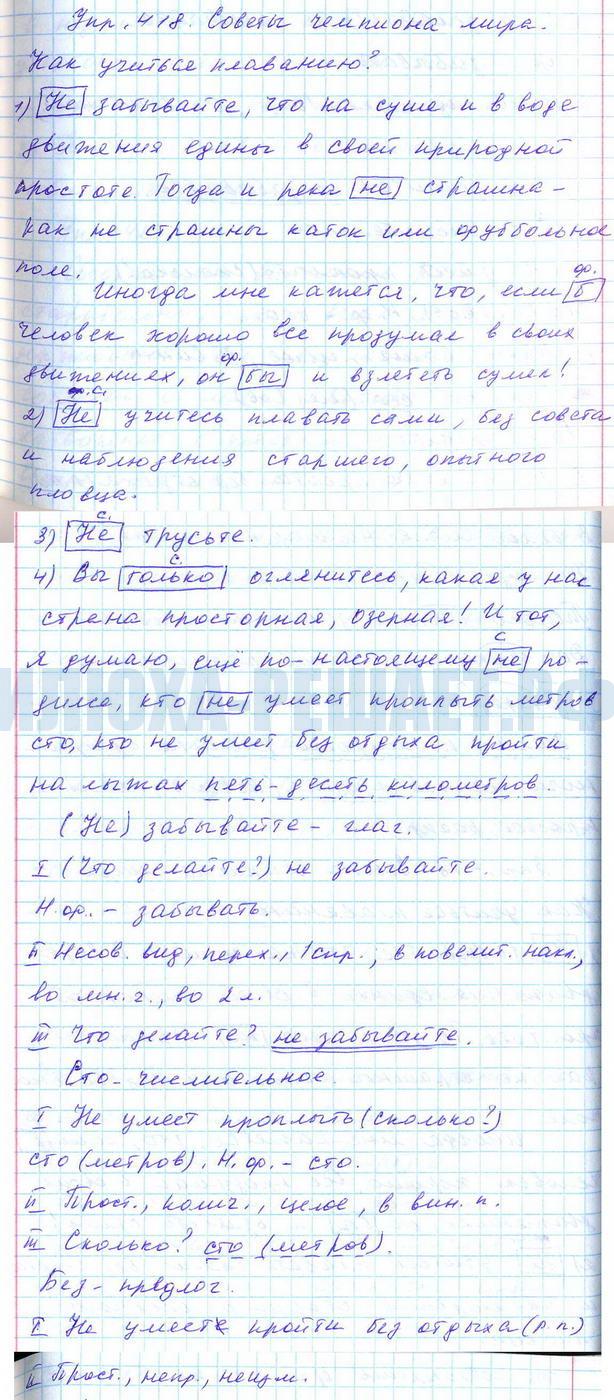 Упр. 418. Советы чемпиона мира.
Как учиться плаванию?
1) Не забывайте, что на суше и в воде
движения едины в своей природной
простоте. Тогда и река не страшна –
как не страшны каток или футбольное
поле.
ф.
Иногда мне кажется, что, если б
человек хорошо все продумал в своих
ф.
движениях, он бы и взлететь сумел!
с.
2) Не учитесь плавать сами, без совета
и наблюдения старшего, опытного
пловца.
с.
3) Не трусьте.
с.
4) Вы только оглянитесь, какая у нас
страна просторная, озерная! И тот,
с
я думаю, ещё по-настоящему не ро-
дился, кто не умеет проплыть метров
сто, кто не умеет без отдыха пройти
на лыжах пять-десять километров.
(Не) забывайте – глаг.
I (Что делайте?) не забывайте.
Н.ф. – забывать.
II Несов. вид, перех., 1 спр.; в повелит. накл.,
во мн. ч., во 2 л.
III Что делайте? не забывайте.
Сто – числительное.
I Не умеет проплыть (сколько?)
сто (метров). Н.ф. – сто.
II Прост., колич., целое, в вин. п.
III Сколько? сто (метров).
Без – предлог.
I Не умеет пройти без отдыха (р.п.)
II Прост., непр., неизм.